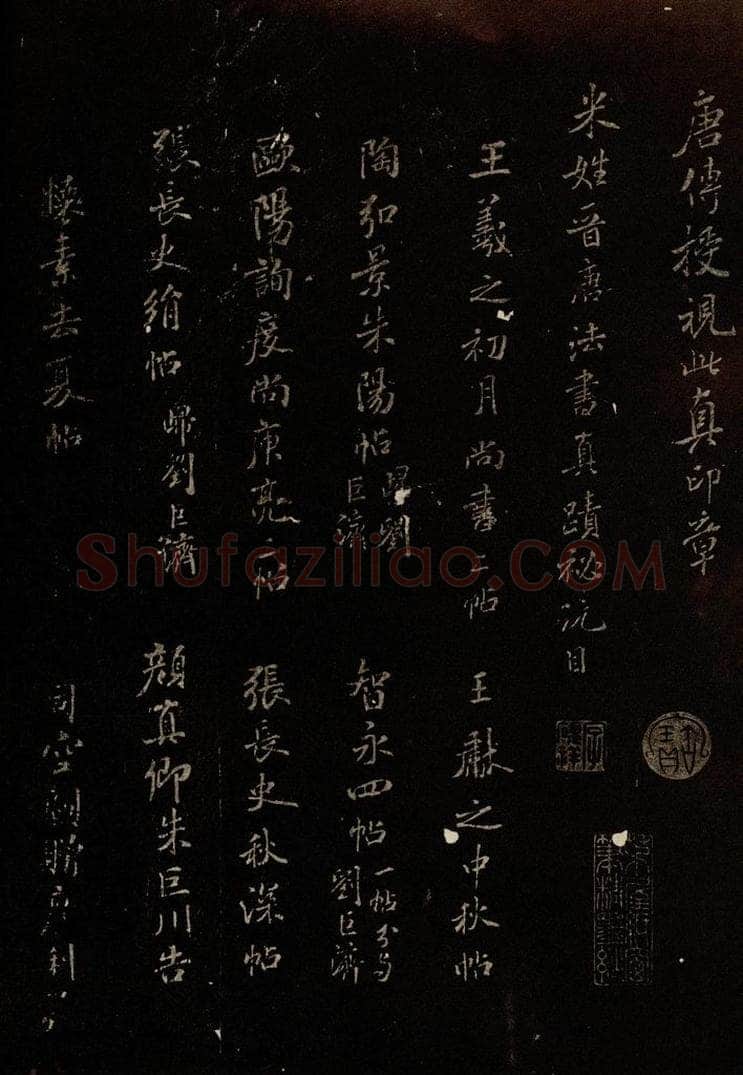 唐傳授視此真印章
米姓晉唐法書真蹟秘玩目
王羲之初月尚書二帖　王獻之中秋帖
陶弘景朱陽帖歸劉巨濟　智永四帖一帖分与劉巨濟
歐陽詢度尚庾亮二帖　張長史秋深帖
張長史絹帖歸劉巨濟　顏真卿朱巨川告
懷素去夏帖　司空圖贈廣利
Shufaziliao.COM